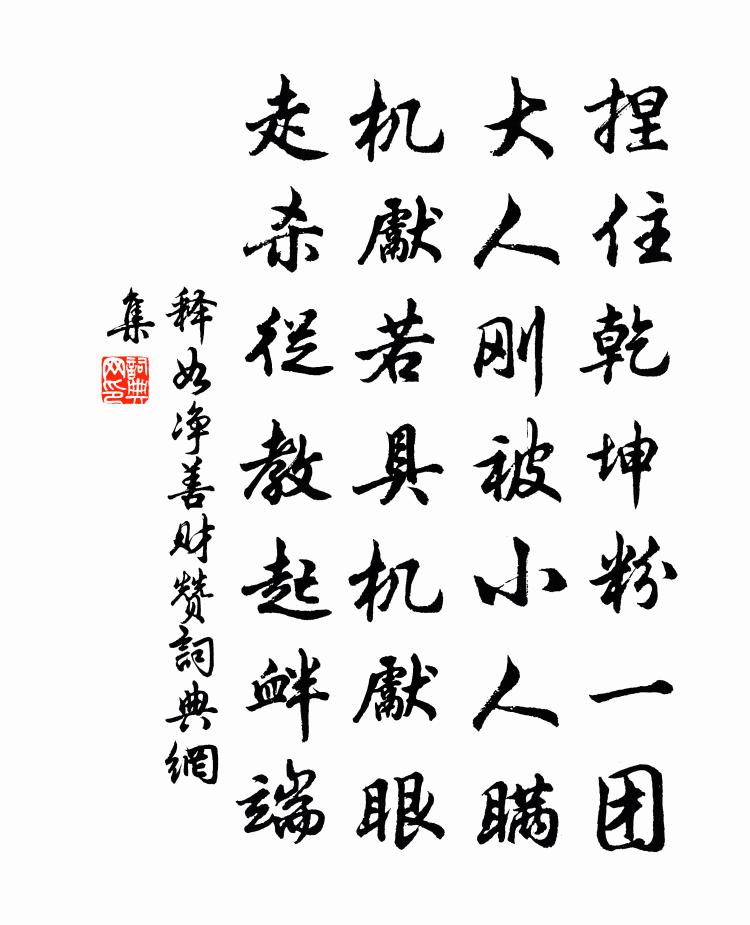 捏住乾坤粉一团
大人刚被小人瞒
机獻若具机獻眼
走杀從教起衅端
释如净善财赞詞典網
集
詞典网印